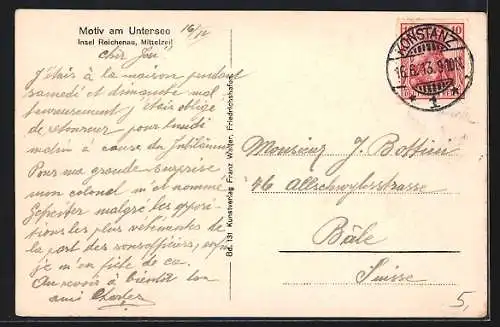 Motiv am Untersee
Insel Reichenau, Mittelzell
16/VI
Cher José
J'étais à la maison pendant
samedi et dimanche mal
heureusement j'étais obligé
de retourner pour lundi
matin à cause du Jubiläum
Pour ma grande surprise
mon colonel m'et nommé
Gefreiter malgré les opposi
tions les plus véhémentes de
la part des sousofficiers, enfin
je m'en fiche de ca.
Au revoir à bientôt ton
ami Charles
Bd. 131 Kunstverlag Franz Walter, Friedrichshafen.
KONSTANZ
16.6.13. 9-10N
* 1 *
10
Monsieur J. Bottini
76 Allschwylerstrasse
Bâle
Suisse
5,